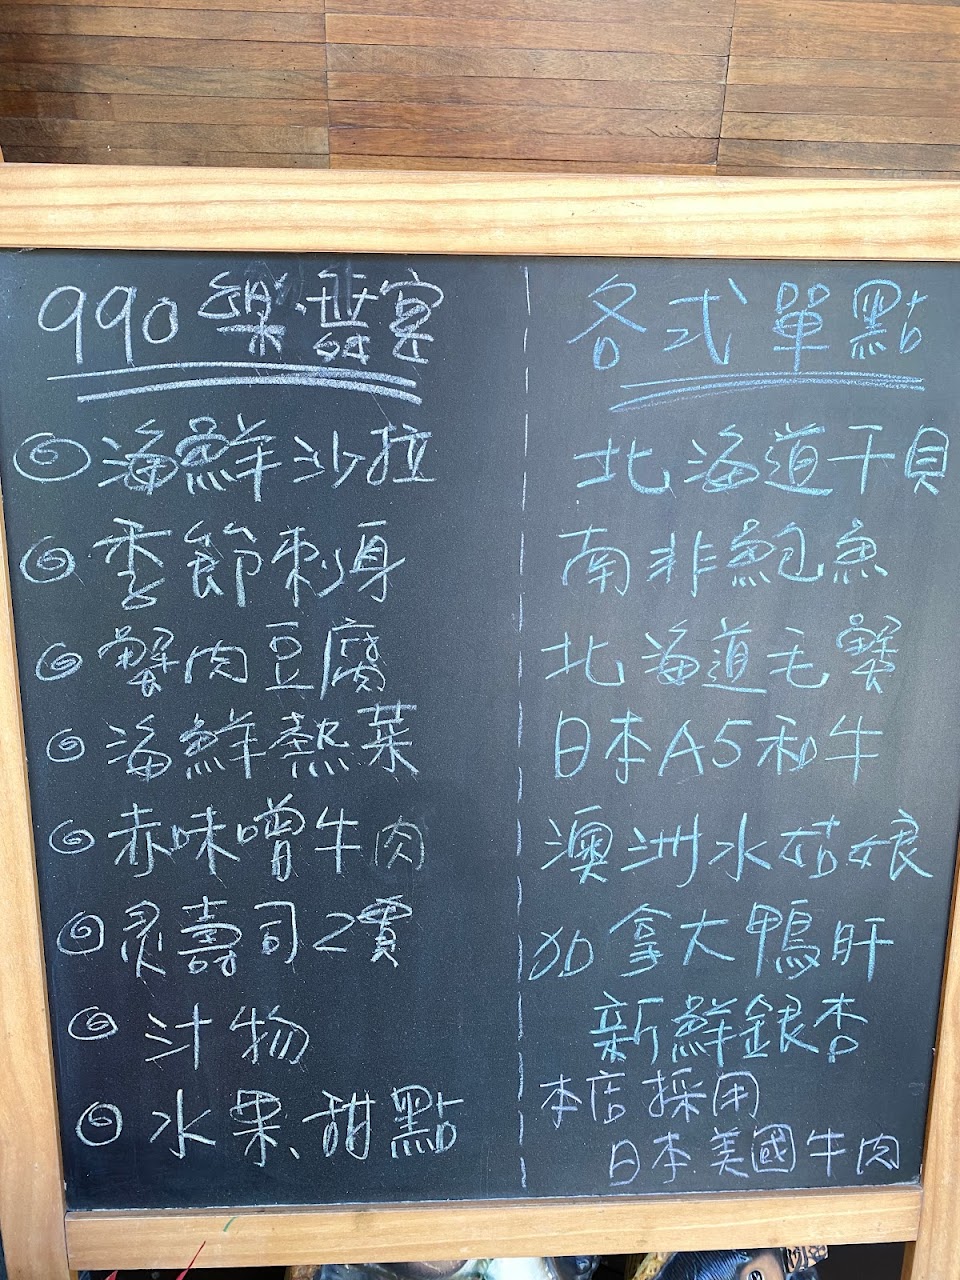 990 樂
海鮮沙拉
季節刺身
蟹肉豆腐
海鮮熱菜
赤味噌牛肉
炙壽司2貫
汁物
水果.甜點
各式單點
北海道干貝
南非鮑魚
北海道毛蟹
日本A5和牛
澳洲水姑娘
加拿大鴨肝
新鮮銀杏
本店採用
日本.美國牛肉